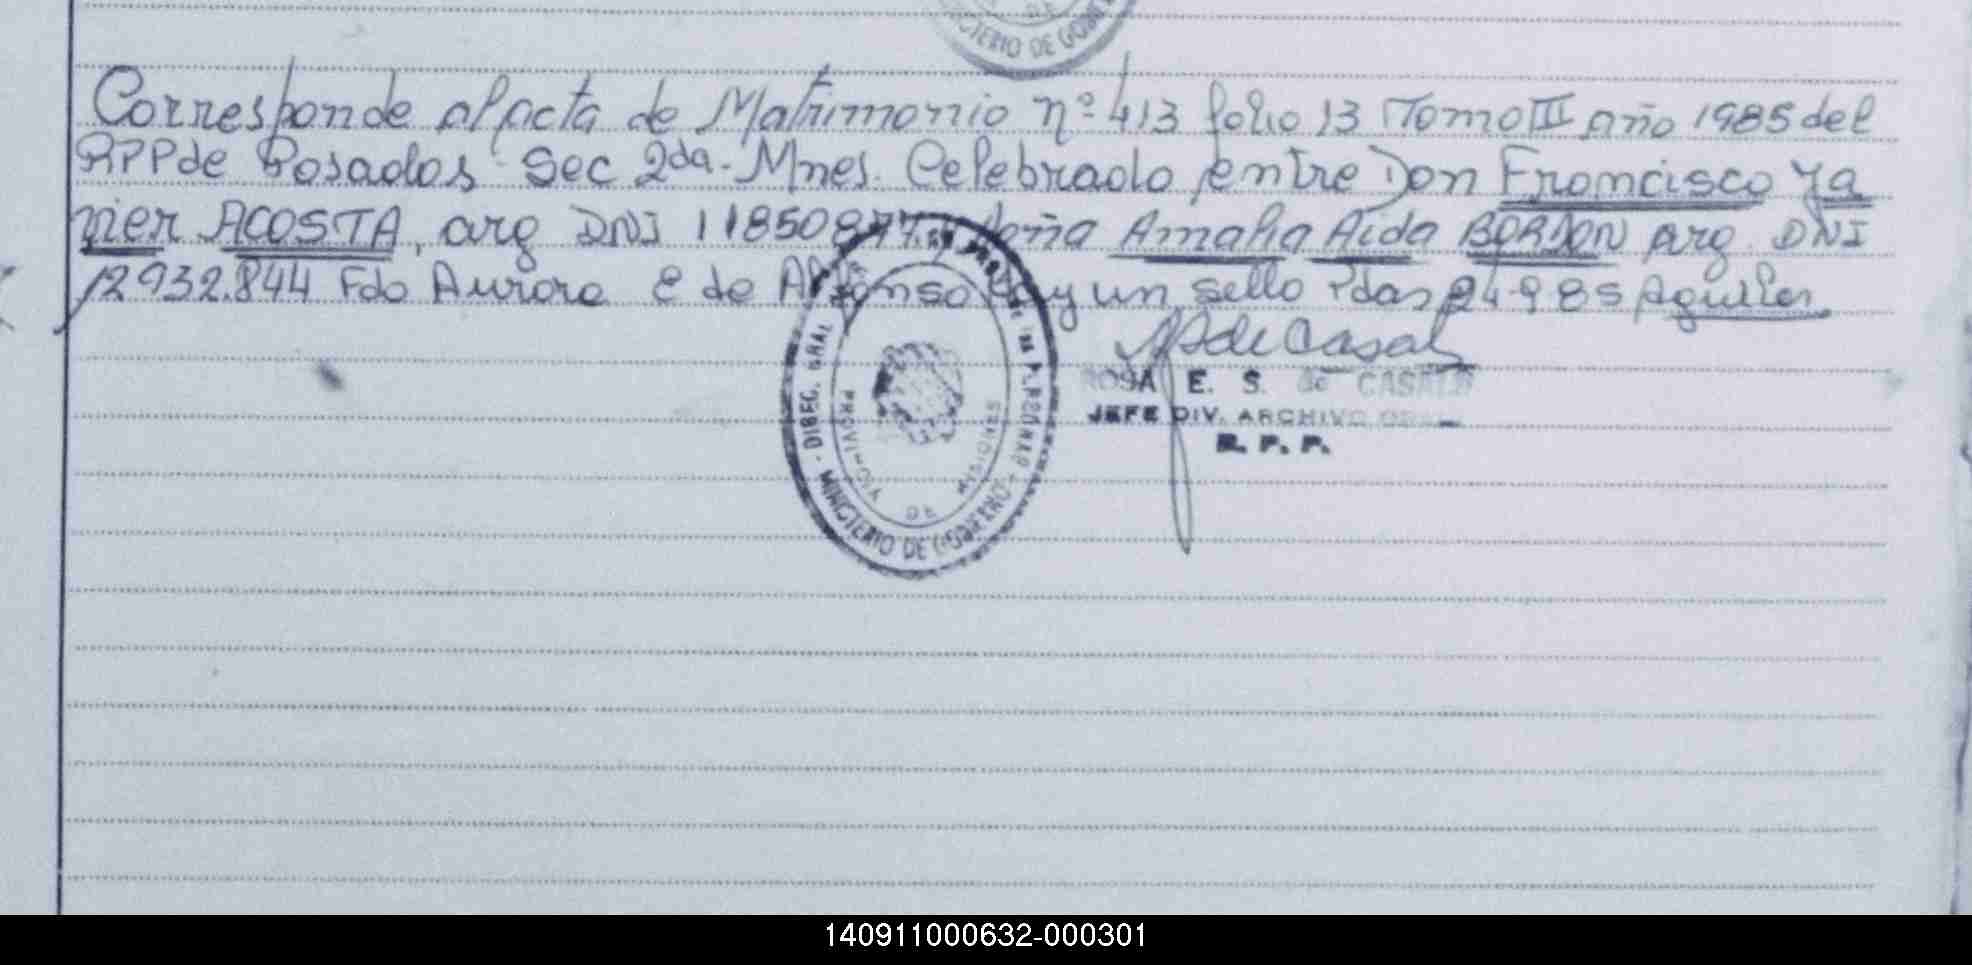 MINISTERIO DE GOBIERNO
Corresponde al acta de Matrimonio nº 413 folio 13 Tomo III año 1985 del
RPP de Posadas Sec 2da. Mnes. Celebrado entre Don Francisco Ja
vier ACOSTA, arg DNI 11850877 doña Amalia Aida BORDON arg. DNI
12932.844 Fdo Aurora E de Alfonso y un sello Pdas 24-9-85 Aguiler
ROSA E. S. de CASALS
JEFE DIV. ARCHIVO GRAL
R. P. P.
DIREC. GRAL
PROVINCIA DE MISIONES
MINISTERIO DE GOBIERNO
140911000632-000301